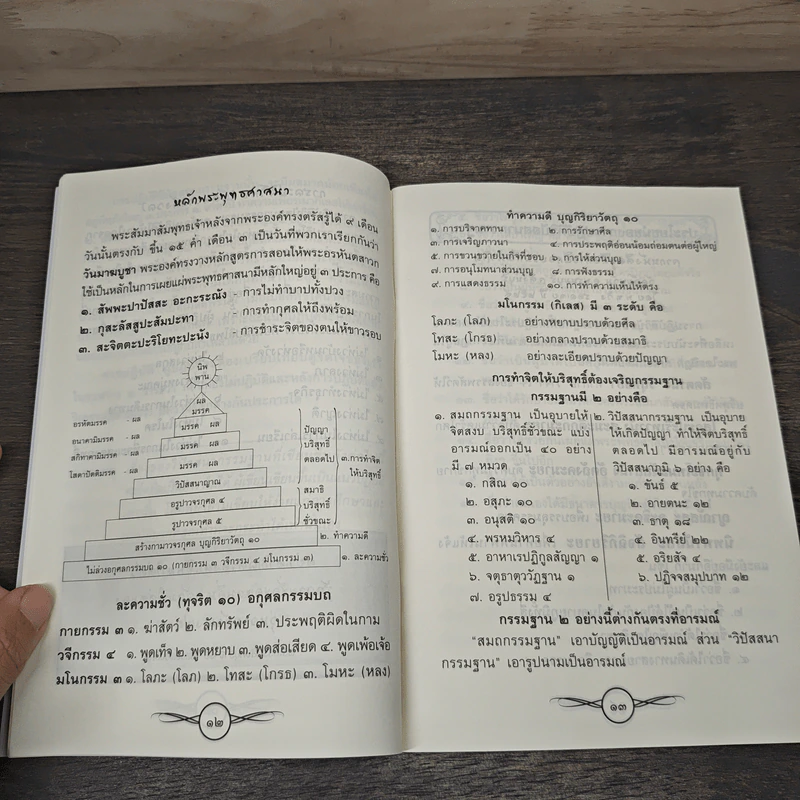 หลักพระพุทธศาสนา
พระสัมมาสัมพุทธเจ้าหลังจากพระองค์ทรงตรัสรู้ได้ ๙ เดือน
วันนั้นตรงกับ ขึ้น ๑๕ ค่ำ เดือน ๓ เป็นวันที่พวกเราเรียกกันว่า
วันมาฆบูชา พระองค์ทรงวางหลักสูตรการสอนให้พระอรหันตสาวก
ใช้เป็นหลักในการเผยแผ่พระพุทธศาสนามีหลักใหญ่อยู่ ๓ ประการ คือ
๑. สัพพะปาปัสสะ อะกะระณัง - การไม่ทำบาปทั้งปวง
๒. กุสะลัสสูปะสัมปะทา - การทำกุศลให้ถึงพร้อม
๓. สะจิตตะปะริโยทะปะนัง - การชำระจิตของตนให้ขาวรอบ
นิพ
พาน
ผล
อรหัตมรรค - ผล มรรค
อนาคามิมรรค - ผล มรรค ผล
สกิทาคามิมรรค - ผล มรรค ผล
โสดาปัตติมรรค - ผล มรรค ผล
ปัญญา
บริสุทธิ์
ตลอดไป
วิปัสสนาญาณ
อรูปาวจรกุศล ๔
รูปาวจรกุศล ๕
สมาธิ
บริสุทธิ์
ชั่วขณะ
๓.การทำจิต
ให้บริสุทธิ์
สร้างกามาวจรกุศล บุญกิริยาวัตถุ ๑๐ ๒. ทำความดี
ไม่ล่วงอกุศลกรรมบถ ๑๐ (กายกรรม ๓ วจีกรรม ๔ มโนกรรม ๓) ๑. ละความชั่ว
ละความชั่ว (ทุจริต ๑๐) อกุศลกรรมบถ
กายกรรม ๓ ๑. ฆ่าสัตว์ ๒. ลักทรัพย์ ๓. ประพฤติผิดในกาม
วจีกรรม ๔ ๑. พูดเท็จ ๒. พูดหยาบ ๓. พูดส่อเสียด ๔. พูดเพ้อเจ้อ
มโนกรรม ๓ ๑. โลภะ (โลภ) ๒. โทสะ (โกรธ) ๓. โมหะ (หลง)
๑๒
ทำความดี บุญกิริยาวัตถุ ๑๐
๑. การบริจาคทาน ๒. การรักษาศีล
๓. การเจริญภาวนา ๔. การประพฤติอ่อนน้อมถ่อมตนต่อผู้ใหญ่
๕. การขวนขวายในกิจที่ชอบ ๖. การให้ส่วนบุญ
๗. การอนุโมทนาส่วนบุญ ๘. การฟังธรรม
๙. การแสดงธรรม ๑๐. การทำความเห็นให้ตรง
มโนกรรม (กิเลส) มี ๓ ระดับ คือ
โลภะ (โลภ) อย่างหยาบปราบด้วยศีล
โทสะ (โกรธ) อย่างกลางปราบด้วยสมาธิ
โมหะ (หลง) อย่างละเอียดปราบด้วยปัญญา
การทำจิตให้บริสุทธิ์ต้องเจริญกรรมฐาน
กรรมฐานมี ๒ อย่างคือ
๑. สมถกรรมฐาน เป็นอุบายให้
จิตสงบ บริสุทธิ์ชั่วขณะ แบ่ง
อารมณ์ออกเป็น ๔๐ อย่าง
มี ๗ หมวด
๑. กสิณ ๑๐
๒. อสุภะ ๑๐
๓. อนุสติ ๑๐
๔. พรหมวิหาร ๔
๕. อาหาเรปฏิกูลสัญญา ๑
๖. จตุธาตุววัฏฐาน ๑
๗. อรูปธรรม ๔
๒. วิปัสสนากรรมฐาน เป็นอุบาย
ให้เกิดปัญญา ทำให้จิตบริสุทธิ์
ตลอดไป มีอารมณ์อยู่กับ
วิปัสสนาภูมิ ๖ อย่าง คือ
๑. ขันธ์ ๕
๒. อายตนะ ๑๒
๓. ธาตุ ๑๘
๔. อินทรีย์ ๒๒
๕. อริยสัจ ๔
๖. ปฏิจจสมุปบาท ๑๒
กรรมฐาน ๒ อย่างนี้ต่างกันตรงที่อารมณ์
"สมถกรรมฐาน" เอาบัญญัติเป็นอารมณ์ ส่วน "วิปัสสนา
กรรมฐาน" เอารูปนามเป็นอารมณ์
๑๓